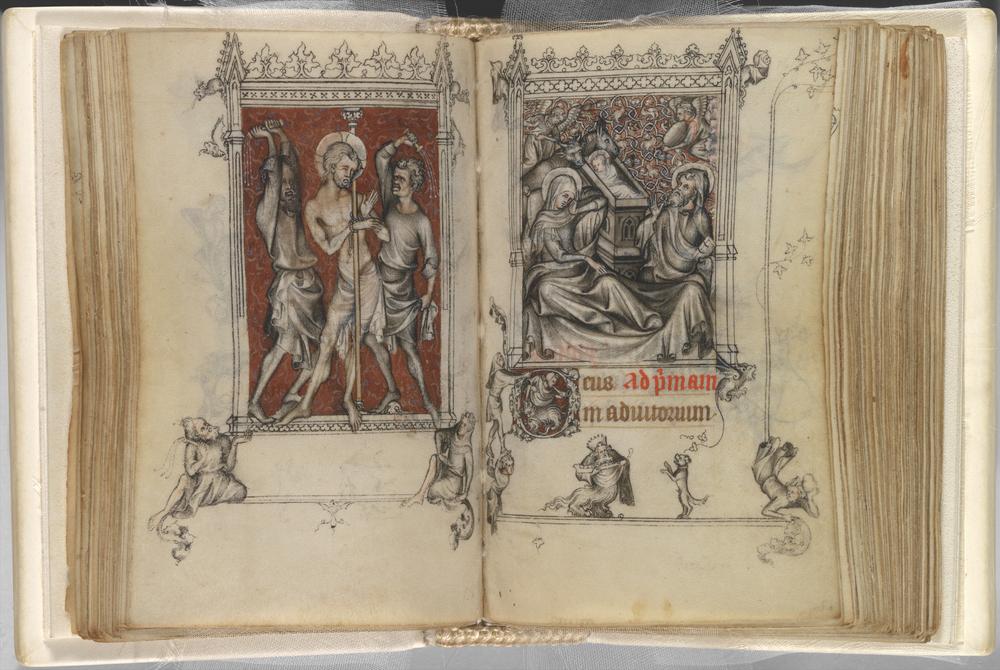 Deus. ad p̄mam
in adiutorium